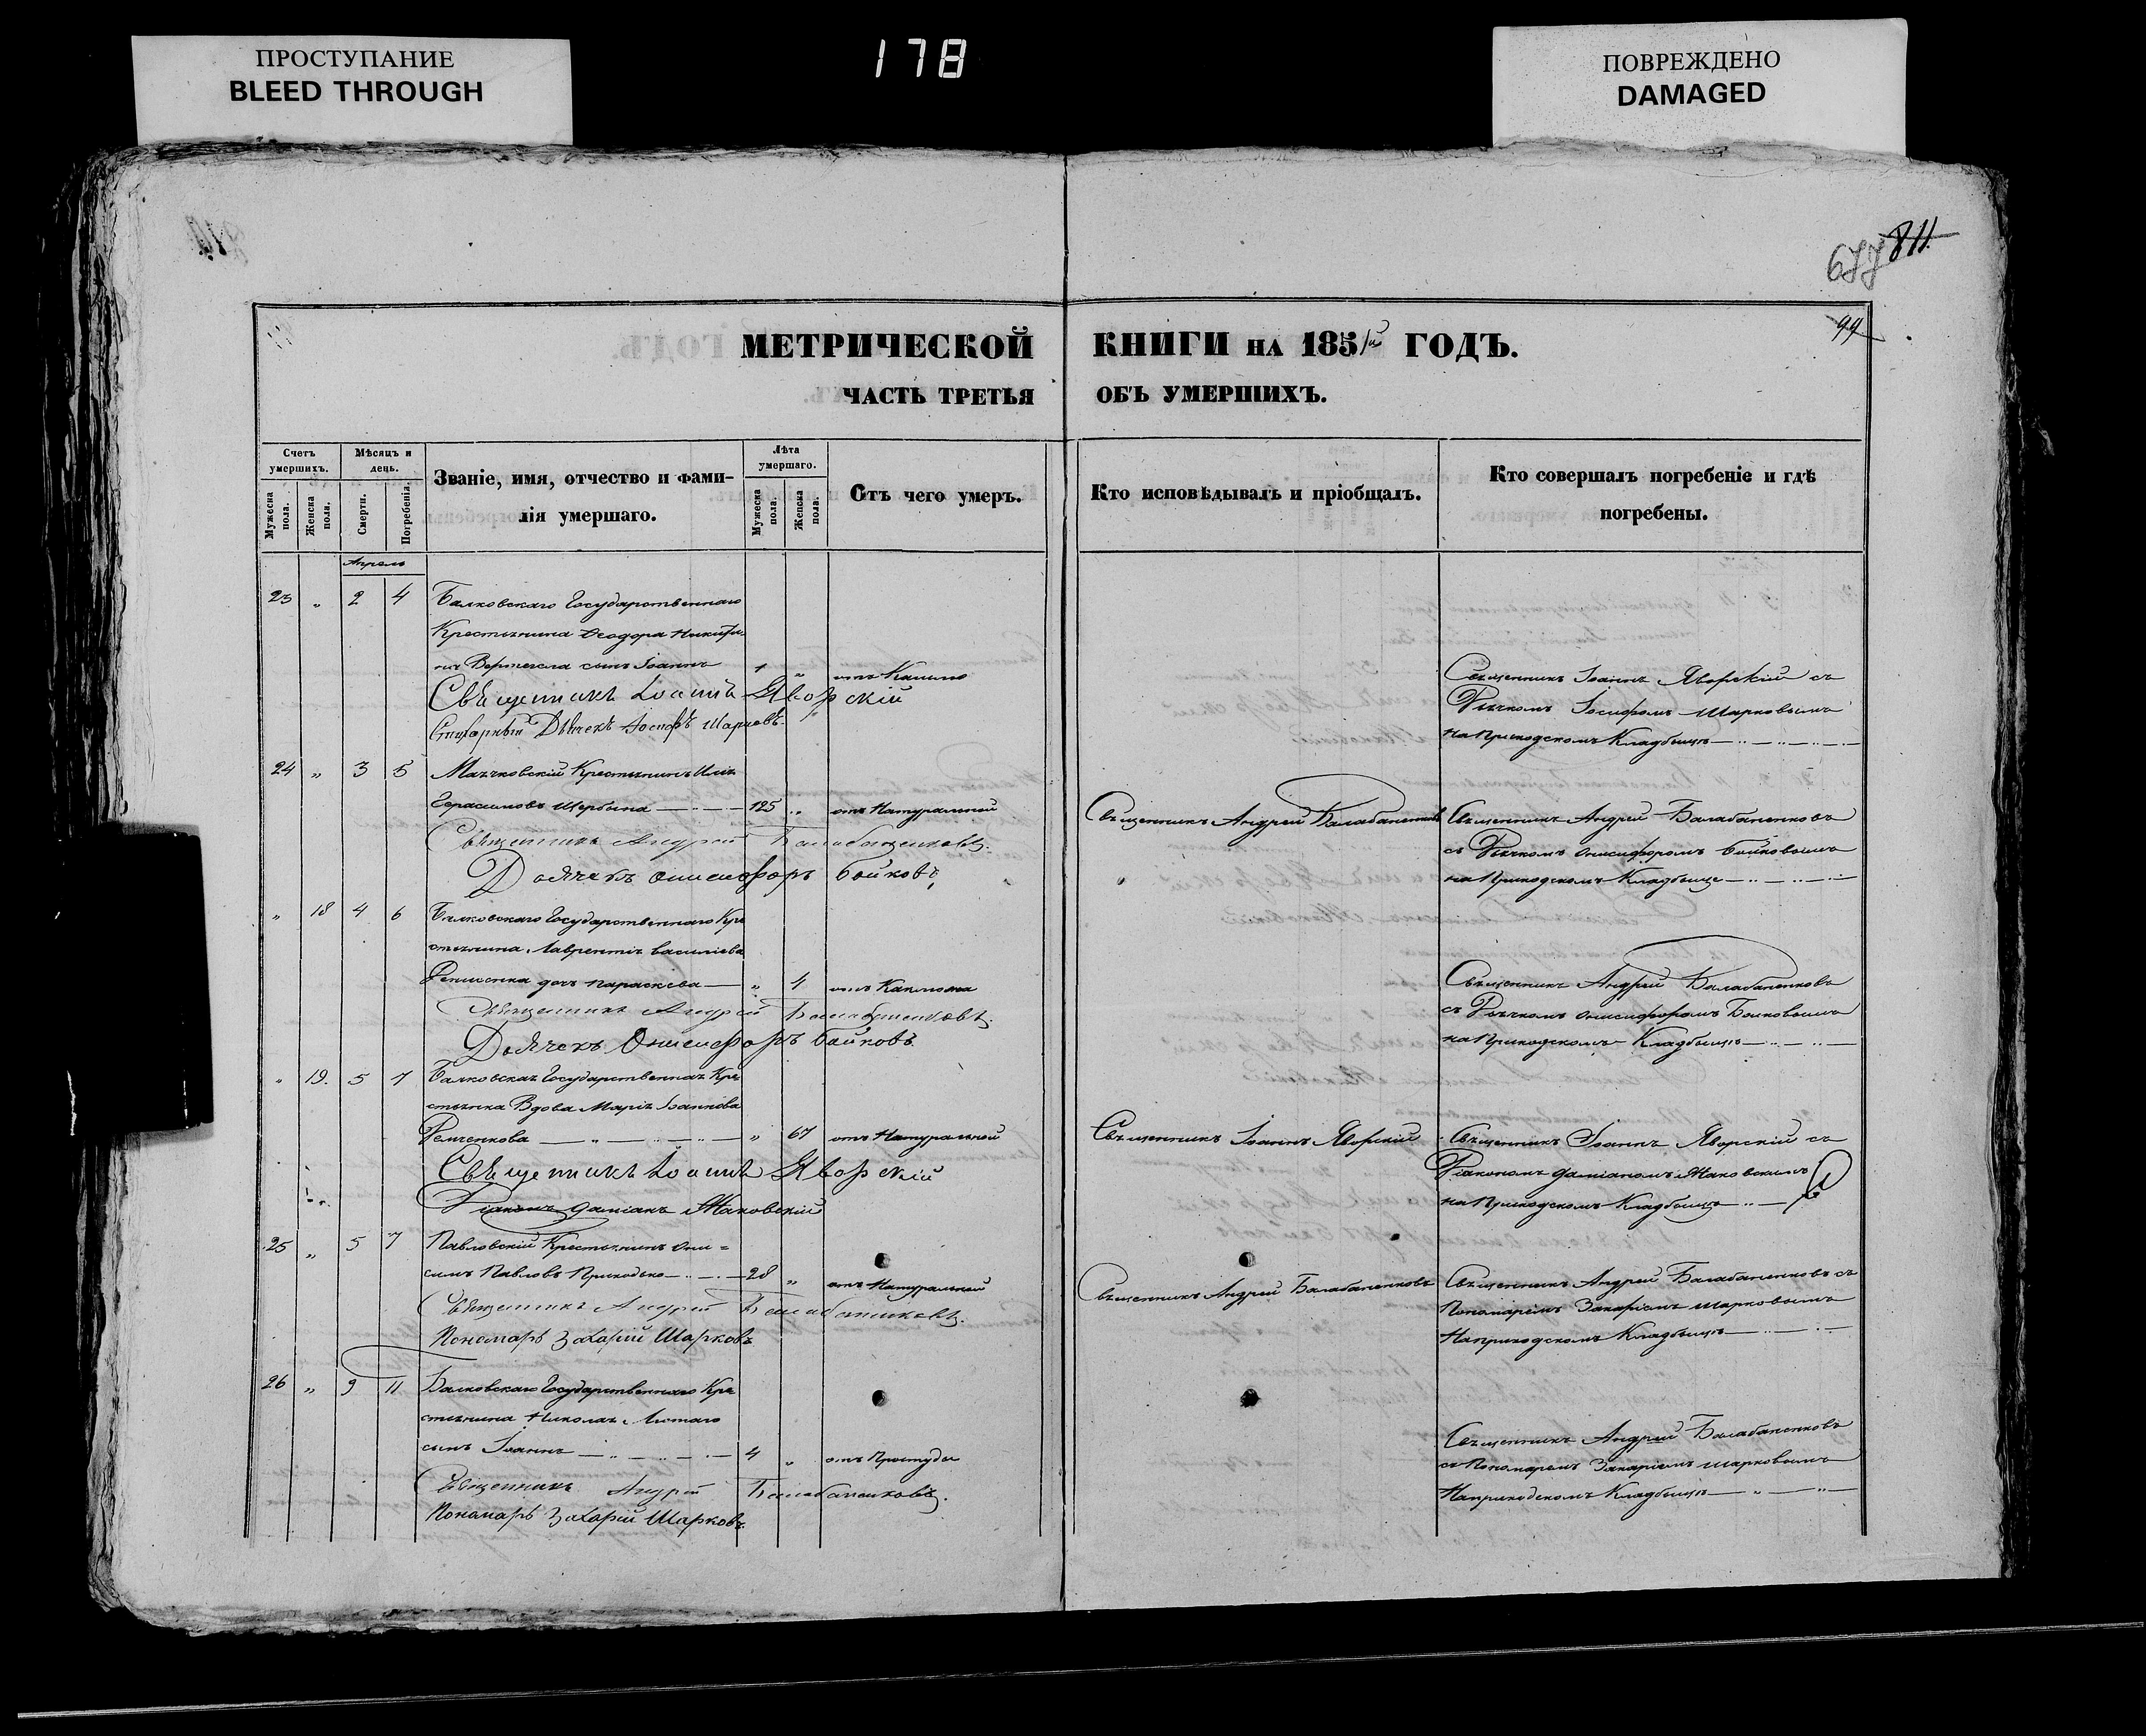 ПРОСТУПАНИЕ
BLEED THROUGH
178
ПОВРЕЖДЕНО
DAMAGED
677 811
99
МЕТРИЧЕСКОЙ КНИГИ НА 1851й ГОДЪ.
ЧАСТЬ ТРЕТЬЯ ОБЪ УМЕРШИХЪ.
Счетъ умершихъ.
Мужеска пола.
Женска пола.
Мѣсяцъ и день.
Смерти.
Погребенія.
Званіе, имя, отчество и фами-
лія умершаго.
Лѣта умершаго.
Мужеска пола.
Женска пола.
Отъ чего умеръ.
Кто исповѣдывалъ и пріобщалъ.
Кто совершалъ погребеніе и гдѣ
погребены.
Апрель
23 „ 2 4 Балковскаго Государственнаго
Крестьянина Ѳеодора Никити-
сынъ Іоаннъ 1 „ отъ
Священникъ Іоаннъ Яворскій
Стихарный Дьячекъ Іосифъ Шарковъ.
Священникъ Іоаннъ Яворскій съ
Дьячкомъ Іосифомъ Шарковымъ
на Приходскомъ Кладбищѣ
24 „ 3 5 Крестьянинъ
Герасимовъ Щербина 125 „ отъ Натуральной
Священникъ Андрей Балабаненковъ.
Дьячекъ Онисифоръ Бойковъ
Священникъ Андрей Балабаненковъ
Священникъ Андрей Балабаненковъ
съ Дьячкомъ Онисифоромъ Бойковымъ
на Приходскомъ Кладбище
„ 18 4 6 Балковскаго Государственнаго Кре
стьянина Лаврентія Василіева
дочь Параскева „ 1 отъ
Священникъ Андрей Балабаненковъ.
Дьячекъ Онисифоръ Бойковъ
Священникъ Андрей Балабаненковъ
съ Дьячкомъ Онисифоромъ Бойковымъ
на Приходскомъ Кладбищѣ
„ 19. 5 7 Балковская Государственная Кре
стьянка Вдова Марія Іоаннова
Ремченкова „ 67 отъ Натуральной
Священникъ Іоаннъ Яворскій
Діаконъ Даміанъ Маковскій
Священникъ Іоаннъ Яворскій
Священникъ Іоаннъ Яворскій съ
Діакономъ Даміаномъ Маковскимъ
на Приходскомъ Кладбищѣ
25 „ 5 7 Павловскій Крестьянинъ Они=
симъ Павловъ Приходько 28 „ отъ Натуральной
Священникъ Андрей Балабаненковъ.
Пономарь Захарій Шарковъ
Священникъ Андрей Балабаненковъ
Священникъ Андрей Балабаненковъ съ
Пономаремъ Захаріемъ Шарковымъ
На приходскомъ Кладбищѣ
26 „ 9 11 Балковскаго Государственнаго Кре
стьянина Николая Лютаго
сынъ Іоаннъ 4 „ отъ Простуды
Священникъ Андрей Балабаненковъ.
Пономарь Захарій Шарковъ.
Священникъ Андрей Балабаненковъ
съ Пономаремъ Захаріемъ Шарковымъ
На приходскомъ Кладбищѣ